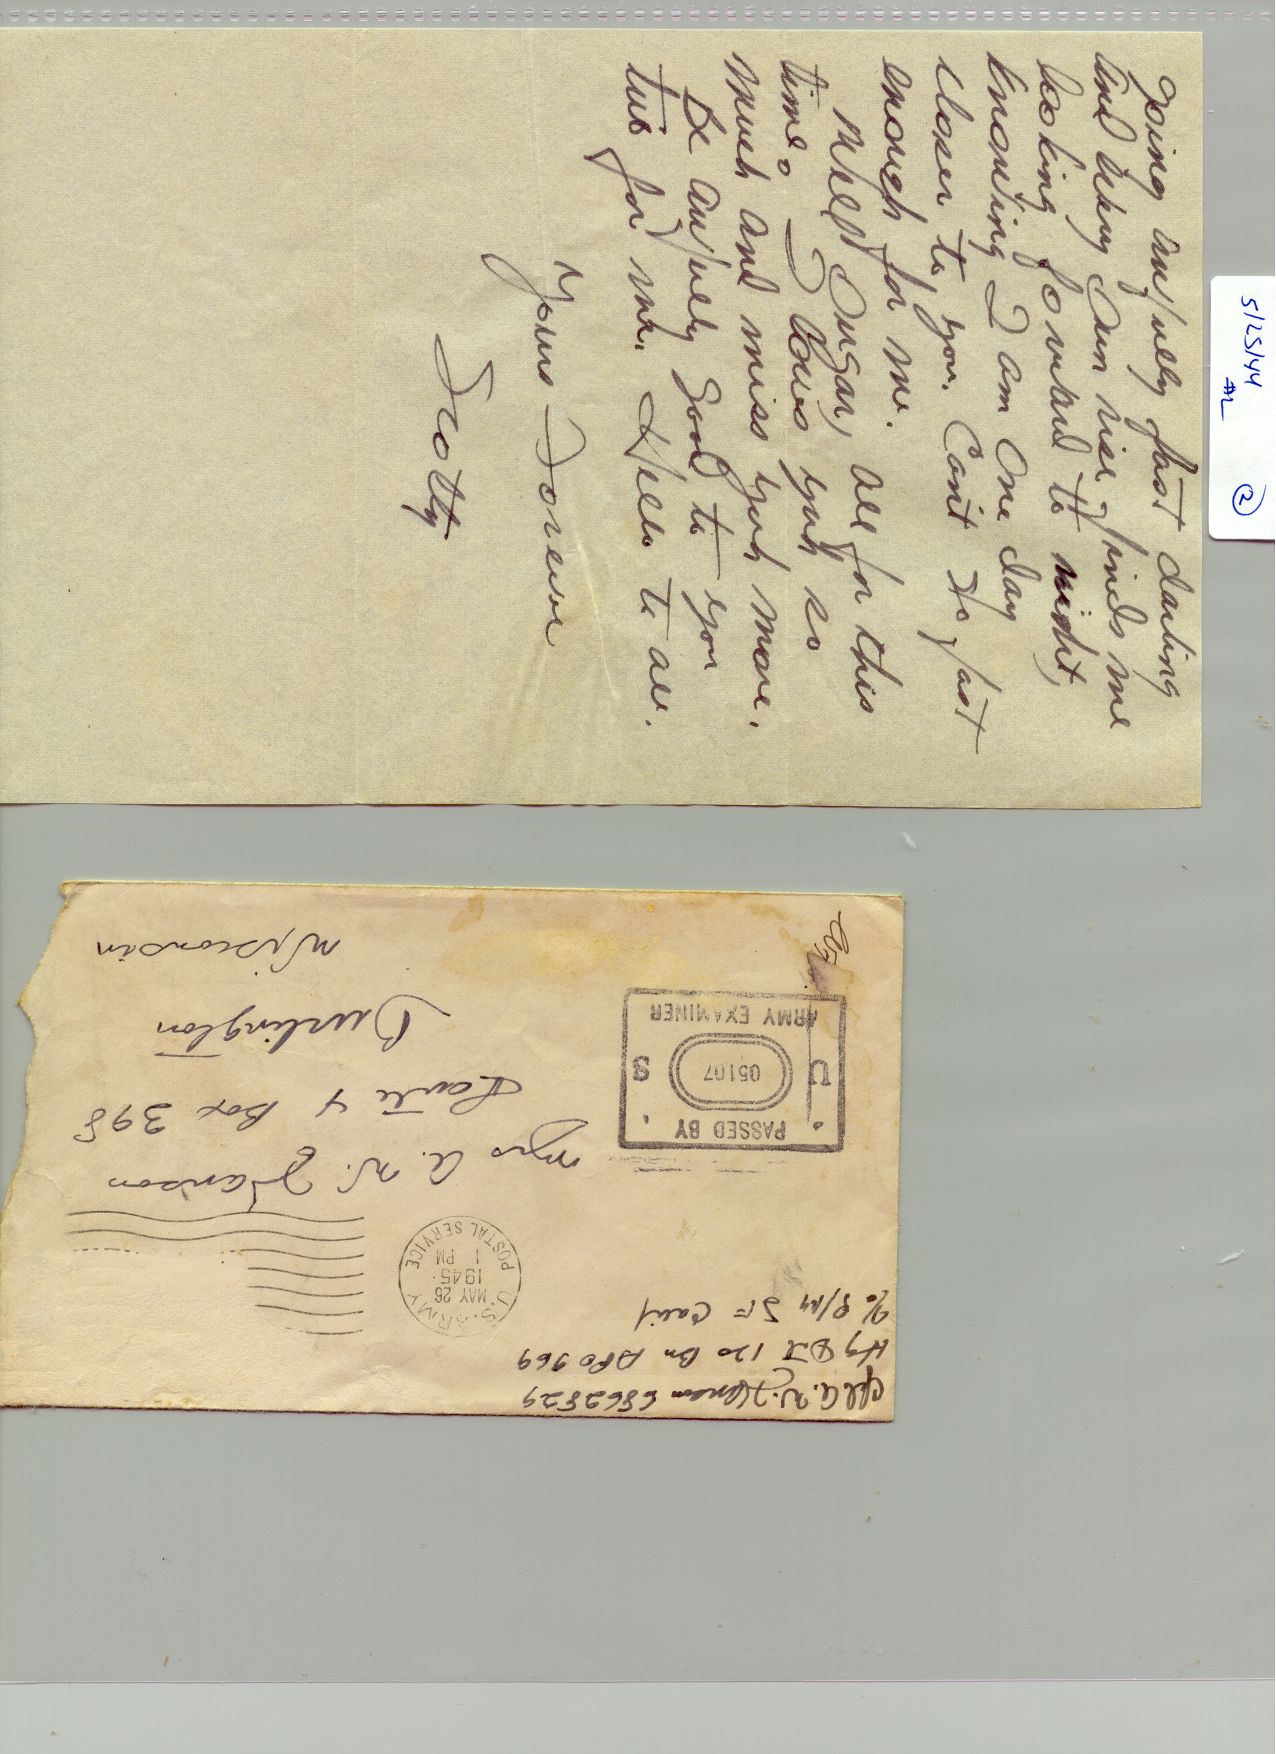 5/25/44
#2
②
going awfully fast darling
and every sun rise finds me
looking forward to night,
knowing I am one day
closer to you. Can't go fast
enough for me.
Well Sugar, all for this
time. I love you so
much and miss you more.
Be awfully good to you
two for me. Hello to all.
Yours Forever
Scotty
Cpl A. W. Hanson 68628529
Hq Det 120 Bn APO 969
% P/M SF Calif
U.S. ARMY
MAY 26
1 PM
1945
POSTAL SERVICE
Mrs A. W. Hanson
Route 4 Box 398
Burlington
Wisconsin
PASSED BY
U 05107 S
ARMY EXAMINER